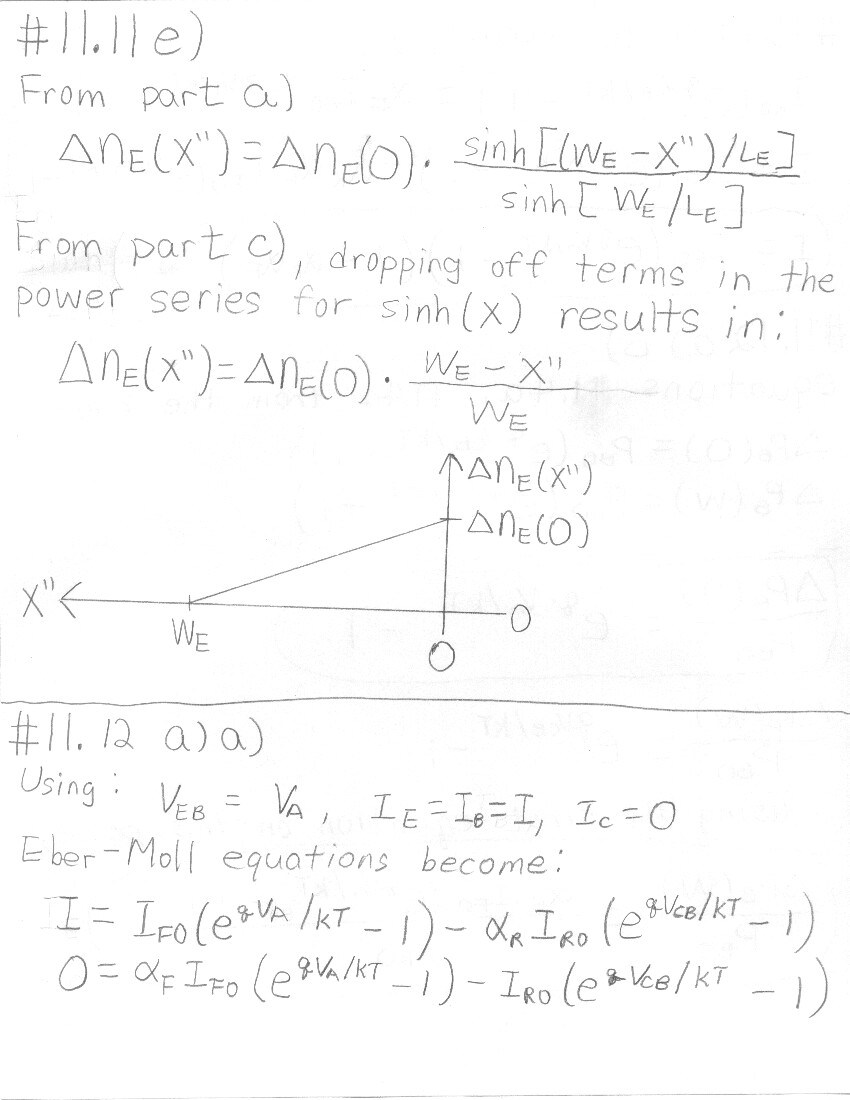 #11.11 e)
From part a)
Δn_E(x") = Δn_E(0) · sinh[(W_E - x")/L_E] / sinh[W_E/L_E]
From part c), dropping off terms in the
power series for sinh(x) results in:
Δn_E(x") = Δn_E(0) · W_E - x" / W_E
Δn_E(x")
Δn_E(0)
x"
W_E
0
0
#11.12 a) a)
Using: V_EB = V_A, I_E = I_B = I, I_C = 0
Eber-Moll equations become:
I = I_FO (e^{qV_A/kT} - 1) - α_R I_RO (e^{qV_CB/kT} - 1)
0 = α_F I_FO (e^{qV_A/kT} - 1) - I_RO (e^{qV_CB/kT} - 1)